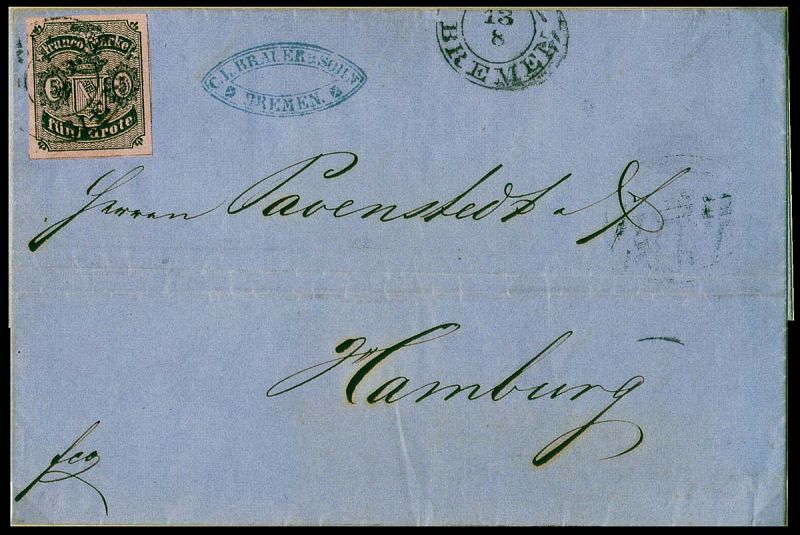 Franco Marke
5 5
fünf Grote
C. L. BRAUER & SOHN
BREMEN.
13
8
BREMEN
Herren Pavenstedt &
Hamburg
fco